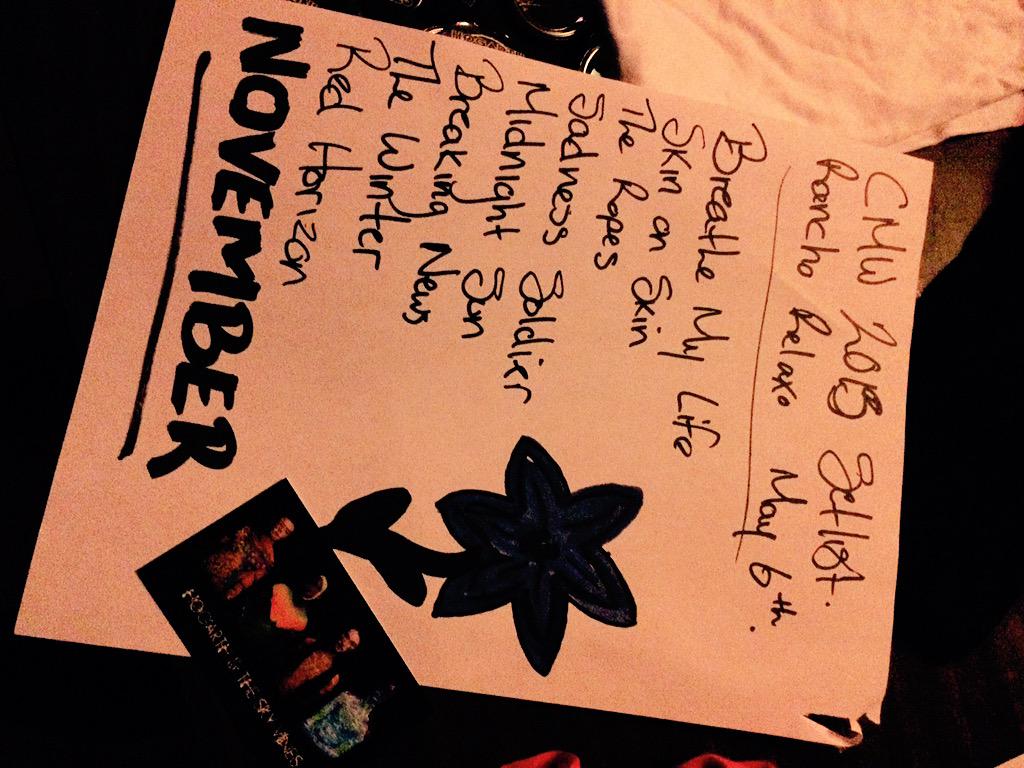 CMW 2015 Setlist.
Rancho Relaxo May 6th.
Breathe My Life
Skin on Skin
The Ropes
Sadness Soldier
Midnight Sun
Breaking News
The Winter
Red Horizon
NOVEMBER
HOGARTH IS THE SKY VIBES